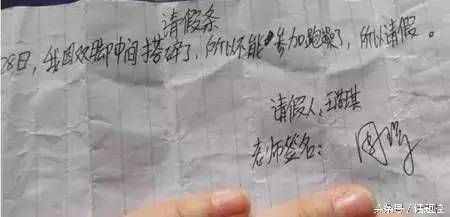 请假条
28日，我因双脚中间搭碎了，所以不能参加跑操了，所以请假。
请假人：王琪
老师签名：周
头条号 /